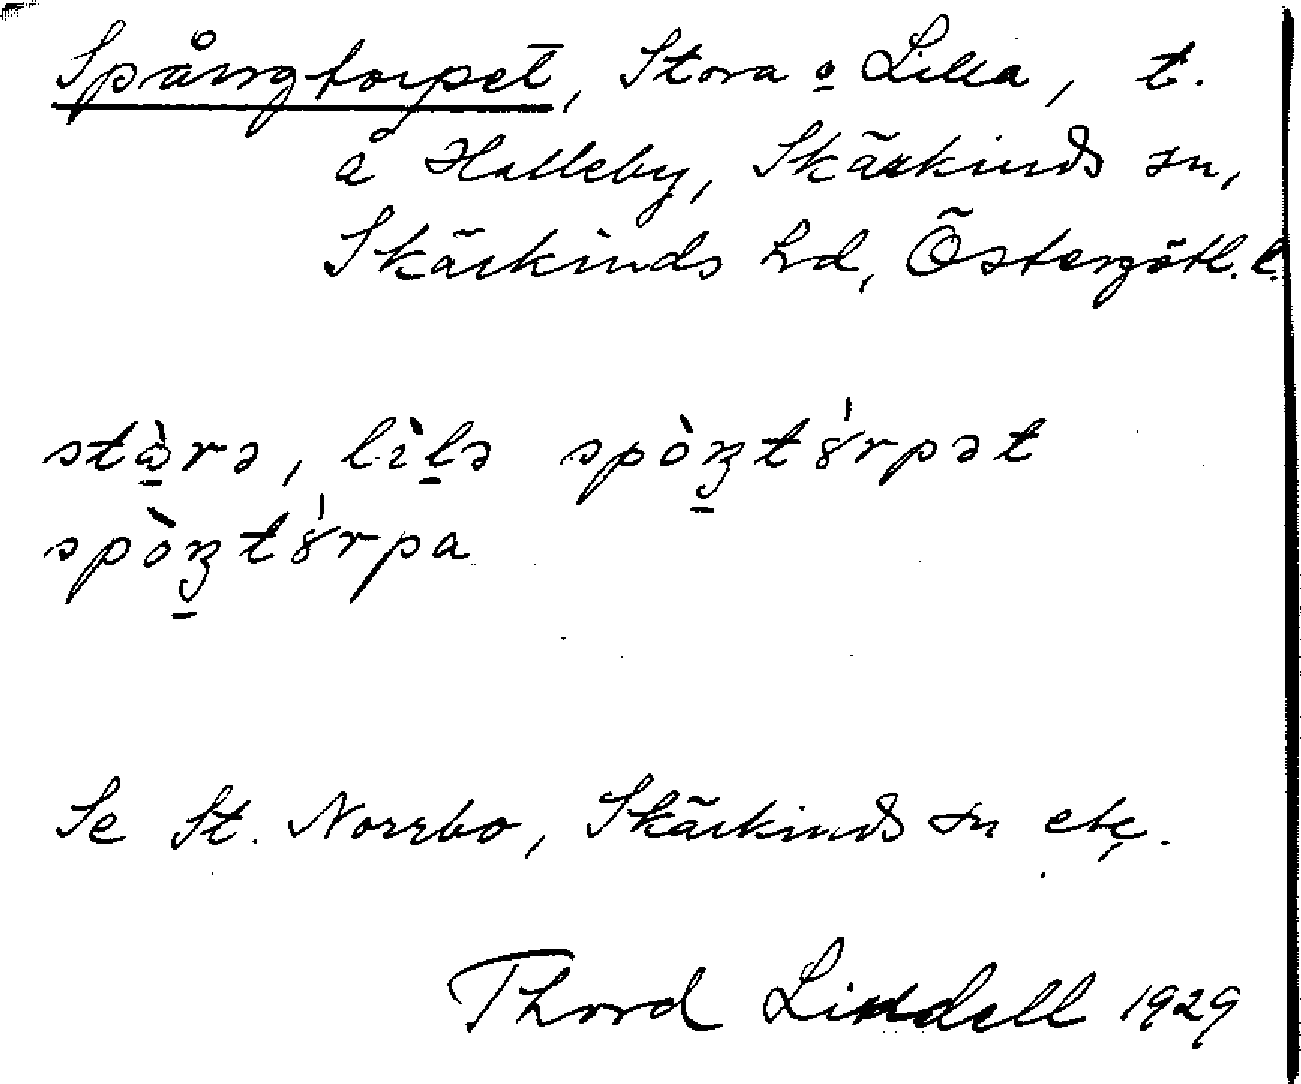 Spångtorpet, Stora o Lilla, t.
å Halleby, Skärkinds sn,
Skärkinds hd, Östergötl. l.
stὰ̱rə, lìḻə spòŋ̱tɤ́rpət
spòŋ̱tɤ́rpa
Se St. Norrbo, Skärkinds sn etc.
Thord Lindell 1929